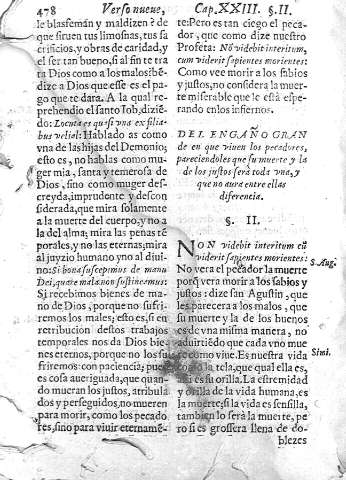 478 Verso nueve,
le blasfemãn y maldizen? de
que siruen tus limosnas, tus sa
crificios, y obras de caridad, y
el ser tan bueno, si al fin te tra
ta Dios como a los malos? bē
dize a Dios que esse es el pa-
go que te dara. A la qual re-
prehendio el santo Iob, diziẽ-
do: Locuta es quasi vna ex filia-
bus velial: Hablado as como
vna de las hijas del Demonio;
esto es, no hablas como mu-
ger mia, santa y temerosa de
Dios, sino como muger des-
creyda, imprudente y descon
siderada, que mira solamente
a la muerte del cuerpo, y no a
la del alma; mira las penas tẽ
porales, y no las eternas; mira
al juyzio humano y no al diui-
no: Si bona suscepimus de manu
Dei, quare mala non sustineamus:
Si recebimos bienes de ma-
no de Dios, porque no sufri-
remos los males; esto es, si en
retribucion destos trabajos
temporales nos da Dios bie-
nes eternos, porque no los su
friremos con paciencia; pues
es cosa aueriguada, que quan-
do mueran los justos, atribula
dos y perseguidos, no mueren
para morir, como los pecado
res, sino para viuir eternamē-
Cap. XXIII. §. II.
te: Pero es tan ciego el peca-
dor, que como dize nuestro
Profeta: Nõ videbit interitum,
cum viderit sapientes morientes:
Como vee morir a los sabios
y justos, no considera la muer-
te miserable que le està espe-
rando en los infiernos.
DEL ENGAÑO GRAN
de en que viuen los pecadores,
pareciendoles que su muerte y la
de los justos serà toda vna, y
que no aura entre ellas
diferencia.
§. II.
NON videbit interitum cũ
viderit sapientes morientes:
No vera el pecador la muerte
porq̃ vera morir a los sabios y
justos: dize san Agustin, que
les parecera a los malos, que
su muerte y la de los buenos
es de vna misma manera, no
aduirtiẽdo que cada vno mue
re como viue. Es nuestra vida
como la tela, que qual ella es,
es su orilla. La estremidad
y orilla de la vida humana, es
la muerte; si la vida es sensilla,
tambien lo serà la muerte, pe
ro si es grossera llena de do-
blezes
S. Aug.
Simi.